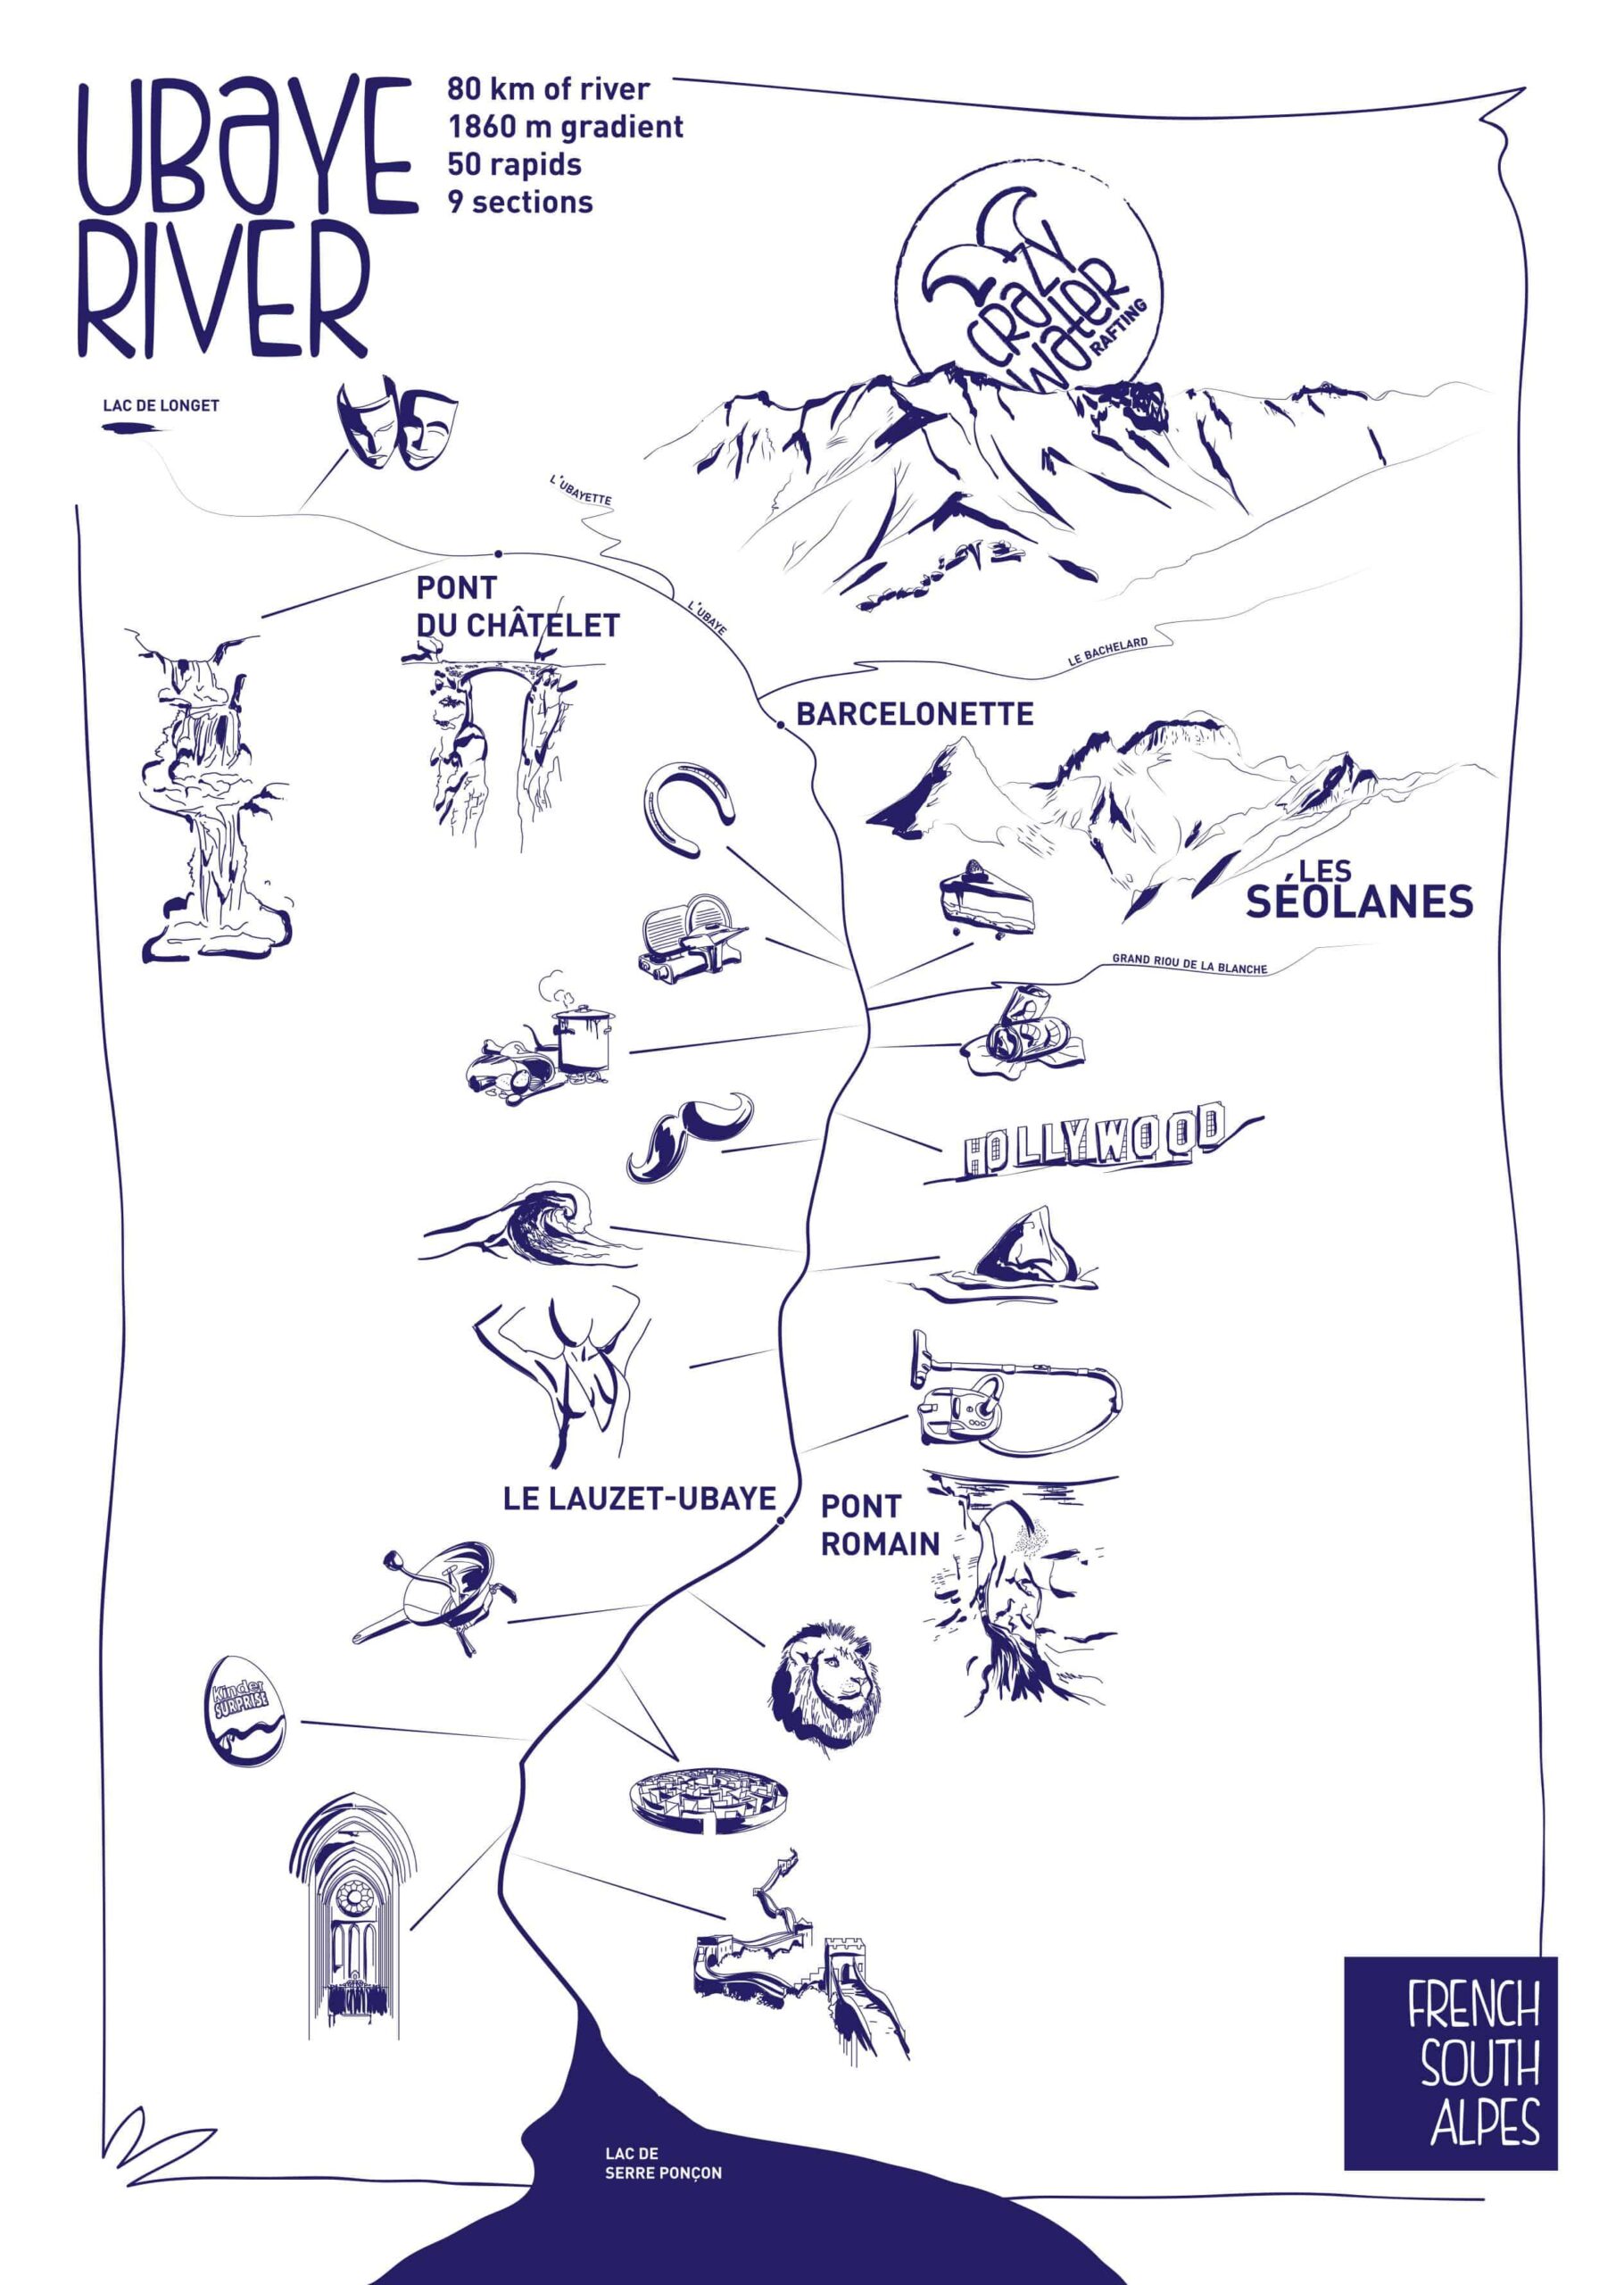 UBAYE
RIVER
80 km of river
1860 m gradient
50 rapids
9 sections
CRAZY
WATER
RAFTING
LAC DE LONGET
L'UBAYETTE
PONT
DU CHÂTELET
L'UBAYE
LE BACHELARD
BARCELONETTE
LES
SÉOLANES
GRAND RIOU DE LA BLANCHE
HOLLYWOOD
LE LAUZET-UBAYE
PONT
ROMAIN
Kinder
SURPRISE
FRENCH
SOUTH
ALPES
LAC DE
SERRE PONÇON